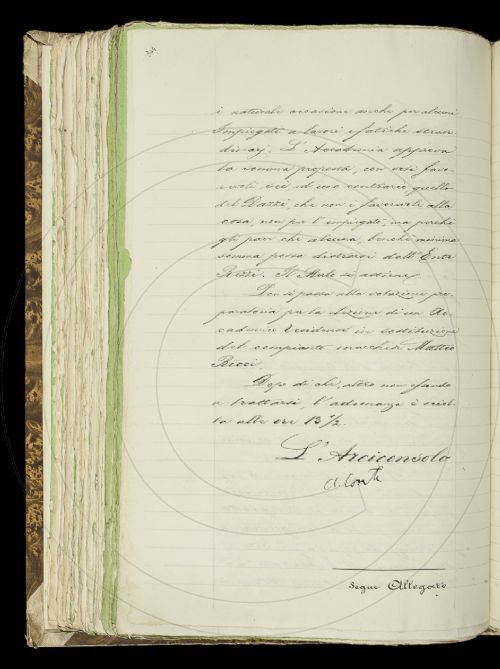 i naturale occasione anche per alcuni
Impiegati a lavori e fatiche straor
dinarj. L'Accademia approva
la somma proposta, con voti favo-
revoli sei ed uno contrario, quello
del Dazzi, che non è favorevole alla
cosa, non per l'impiegati, ma perchè
gli pare che alcuna, benchè minima
somma possa distrarsi dall'Ente
Rezzi. Il Mule si astiene
Poi si passa alla votazione pre-
paratoria per la elezione di un Ac-
cademico Residente in sostituzione
del compianto marchese Matteo
Ricci.
Dopo di che, altro non essendo
a trattarsi, l'adunanza è sciol-
ta alle ore 13 ½.
L'Arciconsolo
A. Conti
Segue Allegato